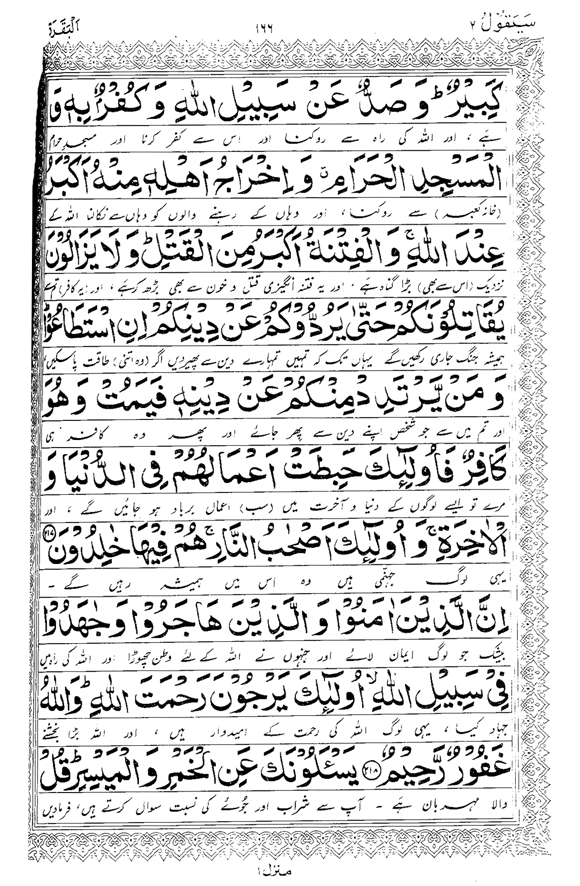 سَيَقُولُ ٢ ١٦٦ اَلْبَقَرَة
كَبِيْرٌ ؕ وَ صَدٌّ عَنْ سَبِيْلِ اللّٰهِ وَ كُفْرٌۢ بِهٖ وَ
ہے ، اور اللہ کی راہ سے روکنا اور اس سے کفر کرنا اور مسجدِ حرام
الْمَسْجِدِ الْحَرَامِ ۗ وَ اِخْرَاجُ اَهْلِهٖ مِنْهُ اَكْبَرُ
(خانہ کعبہ) سے روکنا ، اور وہاں کے رہنے والوں کو وہاں سے نکالنا اللہ کے
عِنْدَ اللّٰهِ ۚ وَ الْفِتْنَةُ اَكْبَرُ مِنَ الْقَتْلِ ؕ وَ لَا يَزَالُوْنَ
نزدیک (اس سے بھی) بڑا گناہ ہے ، اور یہ فتنہ انگیزی قتل و خون سے بھی بڑھ کر ہے ، اور (یہ کافر) تم سے
يُقَاتِلُوْنَكُمْ حَتّٰى يَرُدُّوْكُمْ عَنْ دِيْنِكُمْ اِنِ اسْتَطَاعُوْا ؕ
ہمیشہ جنگ جاری رکھیں گے یہاں تک کہ تمہیں تمہارے دین سے پھیر دیں اگر (وہ اتنی) طاقت پا سکیں
وَ مَنْ يَّرْتَدِدْ مِنْكُمْ عَنْ دِيْنِهٖ فَيَمُتْ وَ هُوَ
اور تم میں سے جو شخص اپنے دین سے پھر جائے اور پھر وہ کافر ہی
كَافِرٌ فَاُولٰٓئِكَ حَبِطَتْ اَعْمَالُهُمْ فِى الدُّنْيَا وَ
مرے تو ایسے لوگوں کے دنیا و آخرت میں (سب) اعمال برباد ہو جائیں گے ، اور
الْاٰخِرَةِ ۚ وَ اُولٰٓئِكَ اَصْحٰبُ النَّارِ ۚ هُمْ فِيْهَا خٰلِدُوْنَ ﴿٢١٧﴾
یہی لوگ جہنمی ہیں وہ اس میں ہمیشہ رہیں گے ۔
اِنَّ الَّذِيْنَ اٰمَنُوْا وَ الَّذِيْنَ هَاجَرُوْا وَ جٰهَدُوْا
بیشک جو لوگ ایمان لائے اور جنہوں نے اللہ کے لئے وطن چھوڑا اور اللہ کی راہ میں
فِىْ سَبِيْلِ اللّٰهِ ۙ اُولٰٓئِكَ يَرْجُوْنَ رَحْمَتَ اللّٰهِ ؕ وَ اللّٰهُ
جہاد کیا ، یہی لوگ اللہ کی رحمت کے امیدوار ہیں ، اور اللہ بڑا بخشنے
غَفُوْرٌ رَّحِيْمٌ ﴿٢١٨﴾ يَسْـَٔلُوْنَكَ عَنِ الْخَمْرِ وَ الْمَيْسِرِ ؕ قُلْ
والا مہربان ہے ۔ آپ سے شراب اور جوئے کی نسبت سوال کرتے ہیں ، فرما دیں
منزل ۱